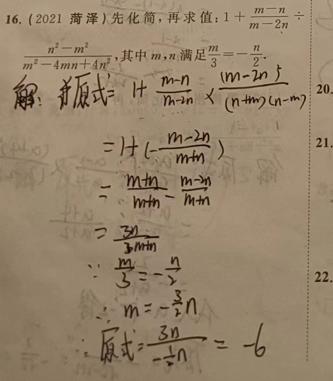 16. (2021 菏泽) 先化简,再求值: 1 + \frac{m-n}{m-2n} ÷
\frac{n²-m²}{m²-4mn+4n²},其中 m,n 满足 \frac{m}{3} = -\frac{n}{2}.
解: 原式 = 1+ \frac{m-n}{m-2n} × \frac{(m-2n)²}{(n+m)(n-m)}
20.
= 1+ (-\frac{m-2n}{m+n})
21.
= \frac{m+n}{m+n} - \frac{m-2n}{m+n}
= \frac{3n}{m+n}
∵ \frac{m}{3} = -\frac{n}{2}
22.
∴ m = -\frac{3}{2}n
∴ 原式 = \frac{3n}{-\frac{1}{2}n} = -6